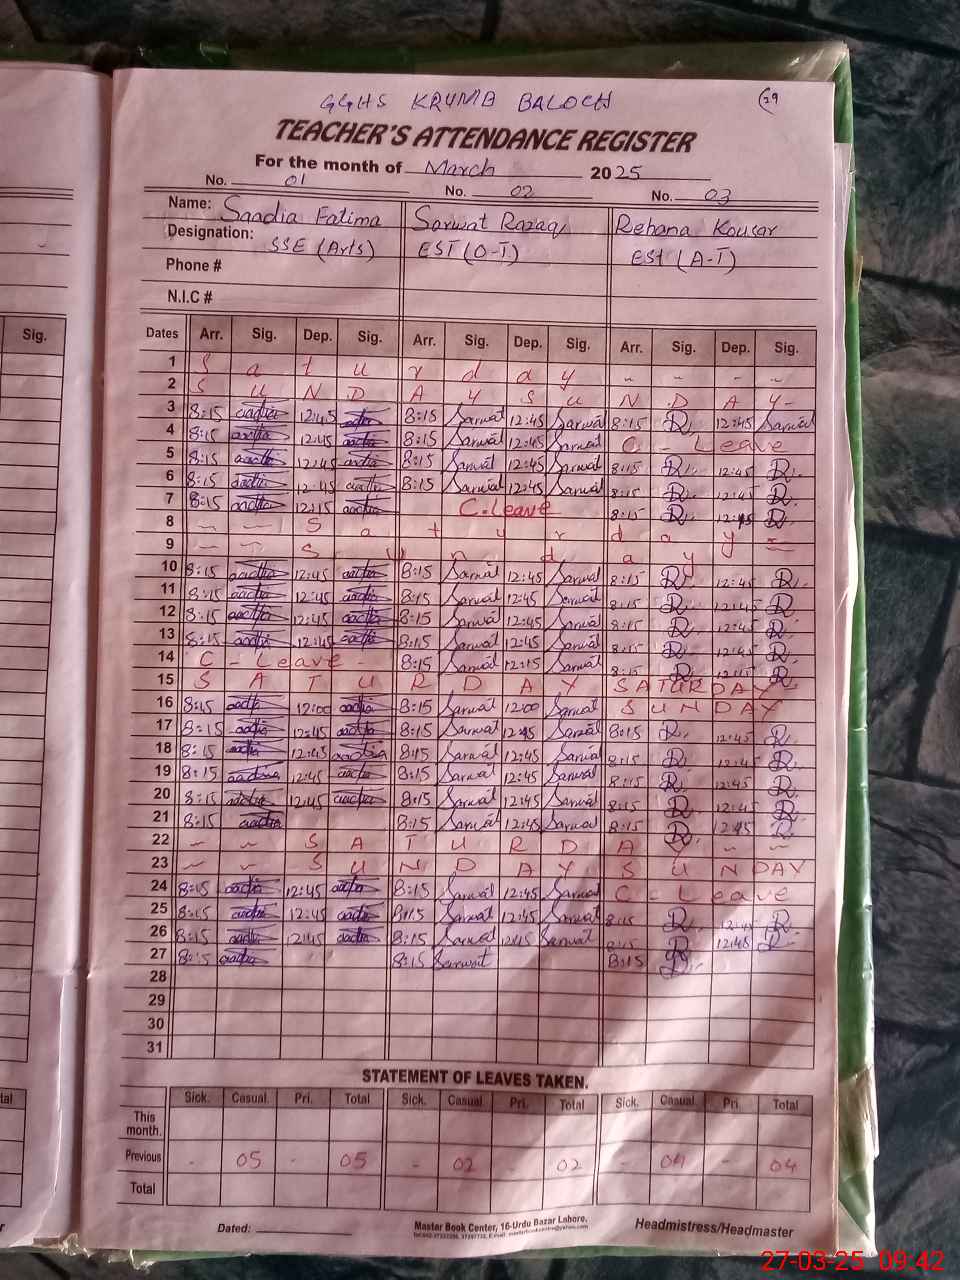 GGHS KRUMB BALOCH
29
TEACHER'S ATTENDANCE REGISTER
For the month of March 2025
No. 01 No. 02 No. 03
Name: Saadia Fatima Sarwat Razaq Rehana Kousar
Designation: SSE (Arts) EST (O-T) EST (A-T)
Phone #
N.I.C #
Sig. Dates Arr. Sig. Dep. Sig. Arr. Sig. Dep. Sig. Arr. Sig. Dep. Sig.
1 S a t u r d a y - - - -
2 S U N D A Y S U N D A Y -
3 8:15 aadia 12:45 aadia 8:15 Sarwat 12:45 Sarwat 8:15 R. 12:45 Sarwat
4 8:15 aadia 12:45 aadia 8:15 Sarwat 12:45 Sarwat C - Leave
5 8:15 aadia 12:45 aadia 8:15 Sarwat 12:45 Sarwat 8:15 R. 12:45 R.
6 8:15 aadia 12:45 aadia 8:15 Sarwat 12:45 Sarwat 8:15 R. 12:45 R.
7 8:15 aadia 12:15 aadia C.Leave 8:15 R. R.
8 - - S a t u r d a y -
9 - - S u n d a y
10 8:15 aadia 12:45 aadia 8:15 Sarwat 12:45 Sarwat 8:15 R. 12:45 R.
11 8:15 aadia 12:45 aadia 8:15 Sarwat 12:45 Sarwat 8:15 R. 12:45 R.
12 8:15 aadia 12:45 aadia 8:15 Sarwat 12:45 Sarwat 8:15 R. 12:45 R.
13 8:15 aadia 12:45 aadia 8:15 Sarwat 12:45 Sarwat 8:15 R. 12:45 R.
14 C - Leave - 8:15 Sarwat 12:15 Sarwat 8:15 R. 12:15 R.
15 S A T U R D A Y SATURDAY
16 8:15 aadia 12:00 aadia 8:15 Sarwat 12:00 Sarwat S U N D A Y
17 8:15 aadia 12:45 aadia 8:15 Sarwat 12:45 Sarwat 8:15 R. 12:45 R.
18 8:15 aadia 12:45 aadia 8:15 Sarwat 12:45 Sarwat 8:15 R. 12:45 R.
19 8:15 aadia 12:45 aadia 8:15 Sarwat 12:45 Sarwat 8:15 R. 12:45 R.
20 8:15 aadia 12:45 aadia 8:15 Sarwat 12:45 Sarwat 8:15 R. 12:45 R.
21 8:15 aadia 8:15 Sarwat 12:45 Sarwat 8:15 R. 12:45 R.
22 - - S A T U R D A Y - -
23 - - S U N D A Y S U N DAY
24 8:15 aadia 12:45 aadia 8:15 Sarwat 12:45 Sarwat C - Leave
25 8:15 aadia 12:45 aadia 8:15 Sarwat 12:45 Sarwat 8:15 R. 12:45 R.
26 8:15 aadia 12:45 aadia 8:15 Sarwat 12:45 Sarwat 8:15 R. 12:45 R.
27 8:15 aadia 8:15 Sarwat 8:15 R.
28
29
30
31
STATEMENT OF LEAVES TAKEN.
Sick. Casual. Pri. Total Sick. Casual Pri. Total Sick. Casual Pri. Total
This month.
Previous - 05 - 05 - 02 - 02 - 04 - 04
Total
Dated: Master Book Center, 16-Urdu Bazar Lahore. Headmistress/Headmaster
27-03-25 09:42